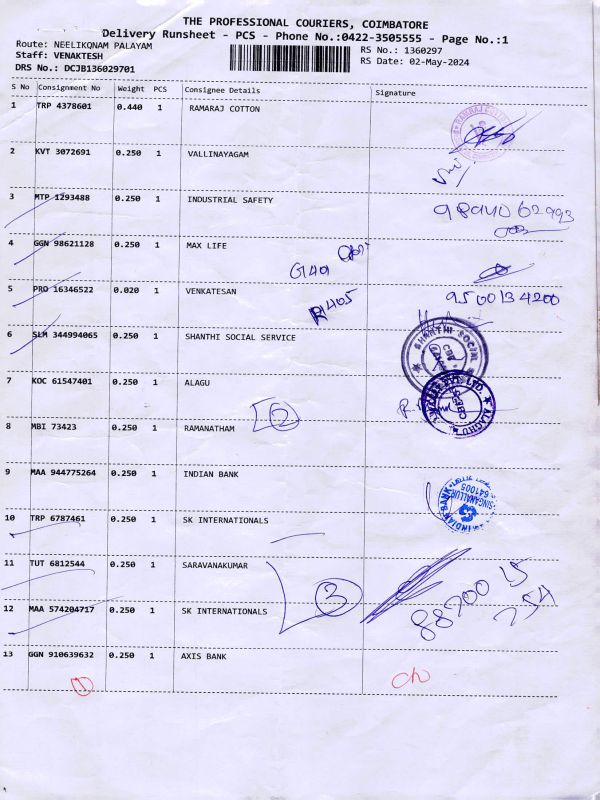 THE PROFESSIONAL COURIERS, COIMBATORE
Delivery Runsheet - PCS - Phone No.:0422-3505555 - Page No.:1
Route: NEELIKONAM PALAYAM
RS No.: 1360297
Staff: VENAKTESH
RS Date: 02-May-2024
DRS No.: DCJB136029701
S No Consignment No Weight PCS Consignee Details Signature
1 TRP 4378601 0.440 1 RAMARAJ COTTON
2 KVT 3072691 0.250 1 VALLINAYAGAM
3 MTP 1293488 0.250 1 INDUSTRIAL SAFETY
4 GGN 98621128 0.250 1 MAX LIFE
G149
5 PRO 16346522 0.020 1 VENKATESAN 9500134200
6 SLM 344994065 0.250 1 SHANTHI SOCIAL SERVICE
SHANTHI SOCIAL
CBE
7 KOC 61547401 0.250 1 ALAGU
2
8 MBI 73423 0.250 1 RAMANATHAM
9 MAA 944775264 0.250 1 INDIAN BANK
SINGANALLUR
641005
INDIAN BANK
10 TRP 6787461 0.250 1 SK INTERNATIONALS
11 TUT 6812544 0.250 1 SARAVANAKUMAR
3
12 MAA 574204717 0.250 1 SK INTERNATIONALS
13 GGN 910639632 0.250 1 AXIS BANK
1